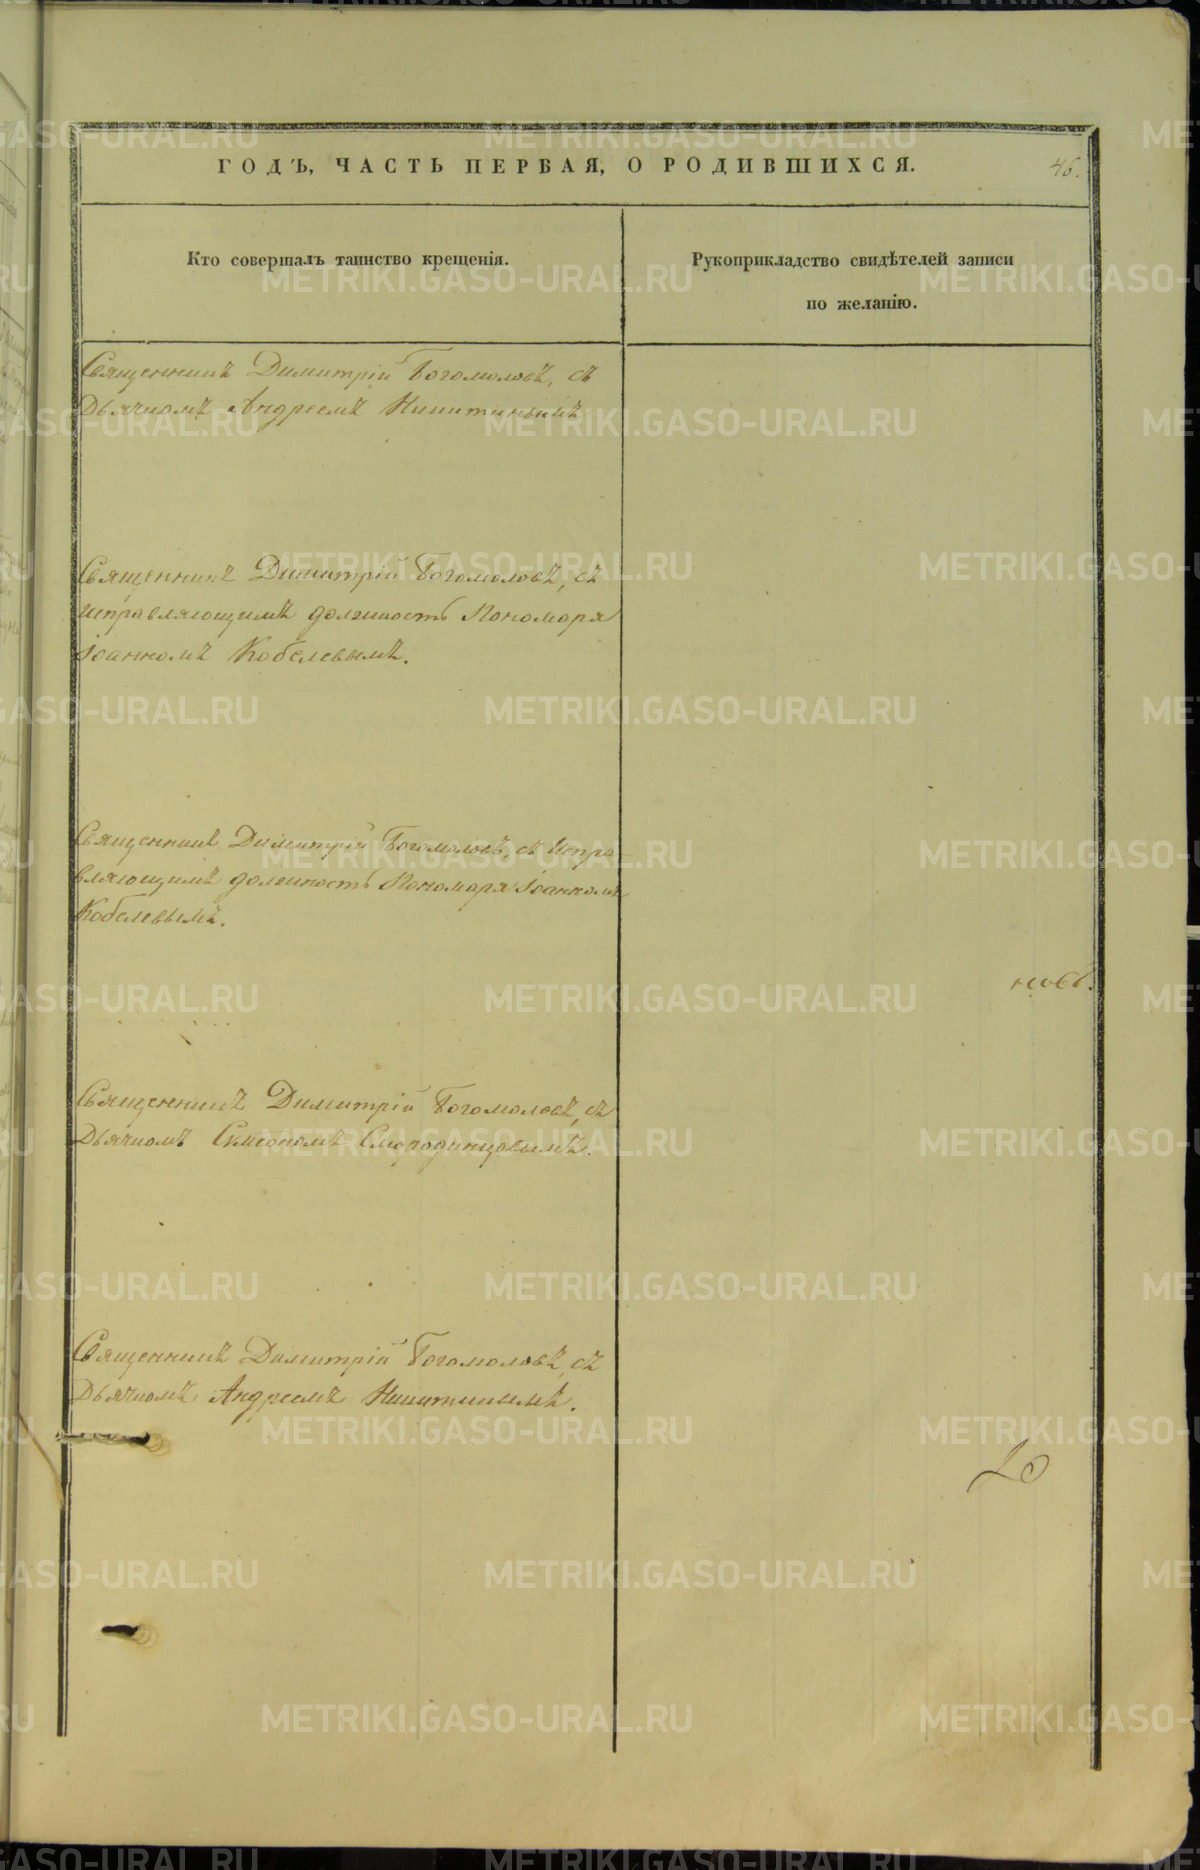 ГОДЪ, ЧАСТЬ ПЕРВАЯ, О РОДИВШИХСЯ.
46.
Кто совершалъ таинство крещенія.
Рукоприкладство свидѣтелей записи
по желанію.
Священникъ Димитрій Богомоловъ, съ
Дьячкомъ Андреемъ Никитинымъ
Священникъ Димитрій Богомоловъ, съ
исправляющимъ должность Пономаря
Іоанномъ Кобелевымъ.
Священникъ Димитрій Богомоловъ, съ Испра
вляющимъ должность Пономаря Іоанномъ
Кобелевымъ.
Священникъ Димитрій Богомоловъ, съ
Дьячкомъ Симеономъ Смородинцовымъ.
Священникъ Димитрій Богомоловъ, съ
Дьячкомъ Андреемъ Никитинымъ.
METRIKI.GASO-URAL.RU